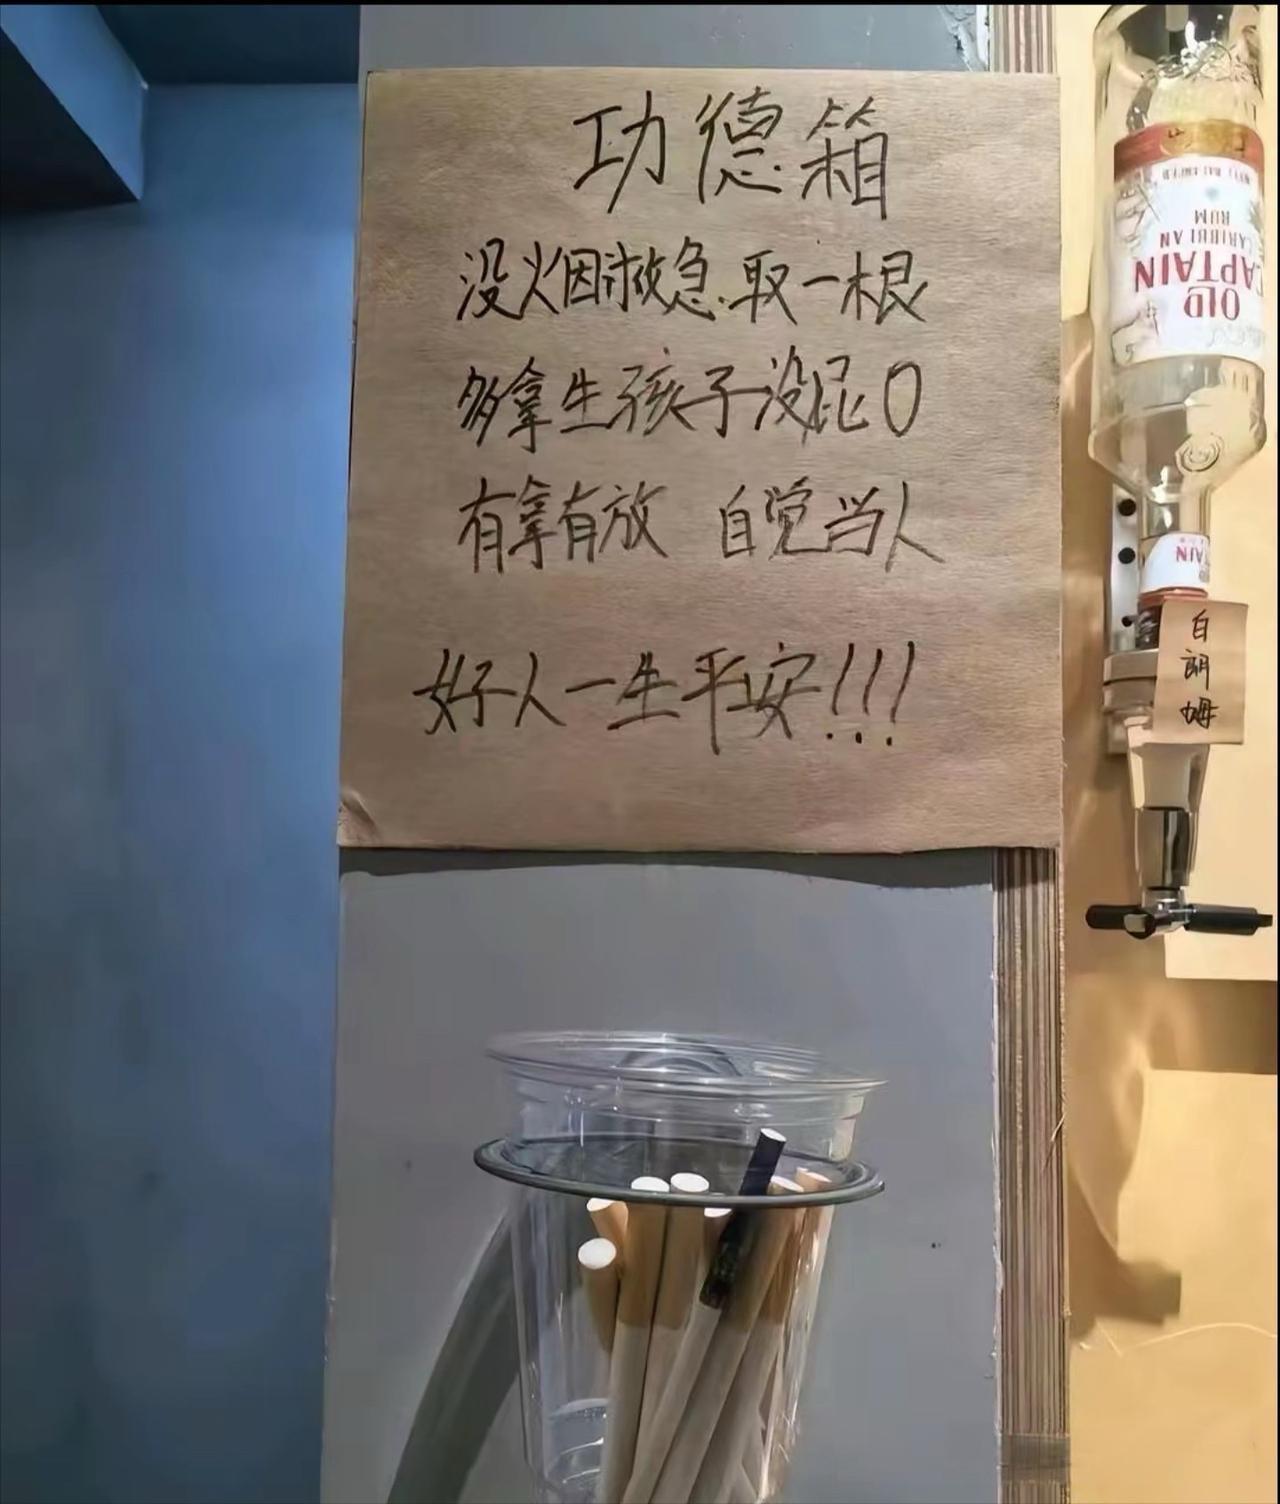 功德箱
没烟救急.取一根
多拿生孩子没屁O
有拿有放 自觉当人
好人一生平安!!!
OLD
CAPTAIN
CARIBBEAN
RUM
白朗姆